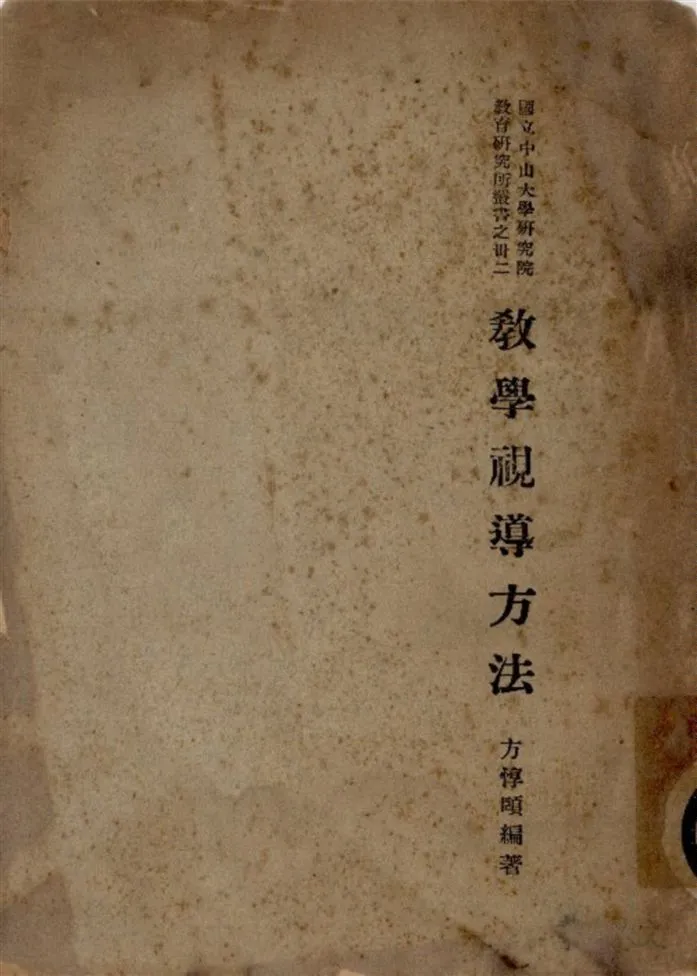 國立中山大學研究院
教育研究所叢書之卅二
教學視導方法
方惇頤編著